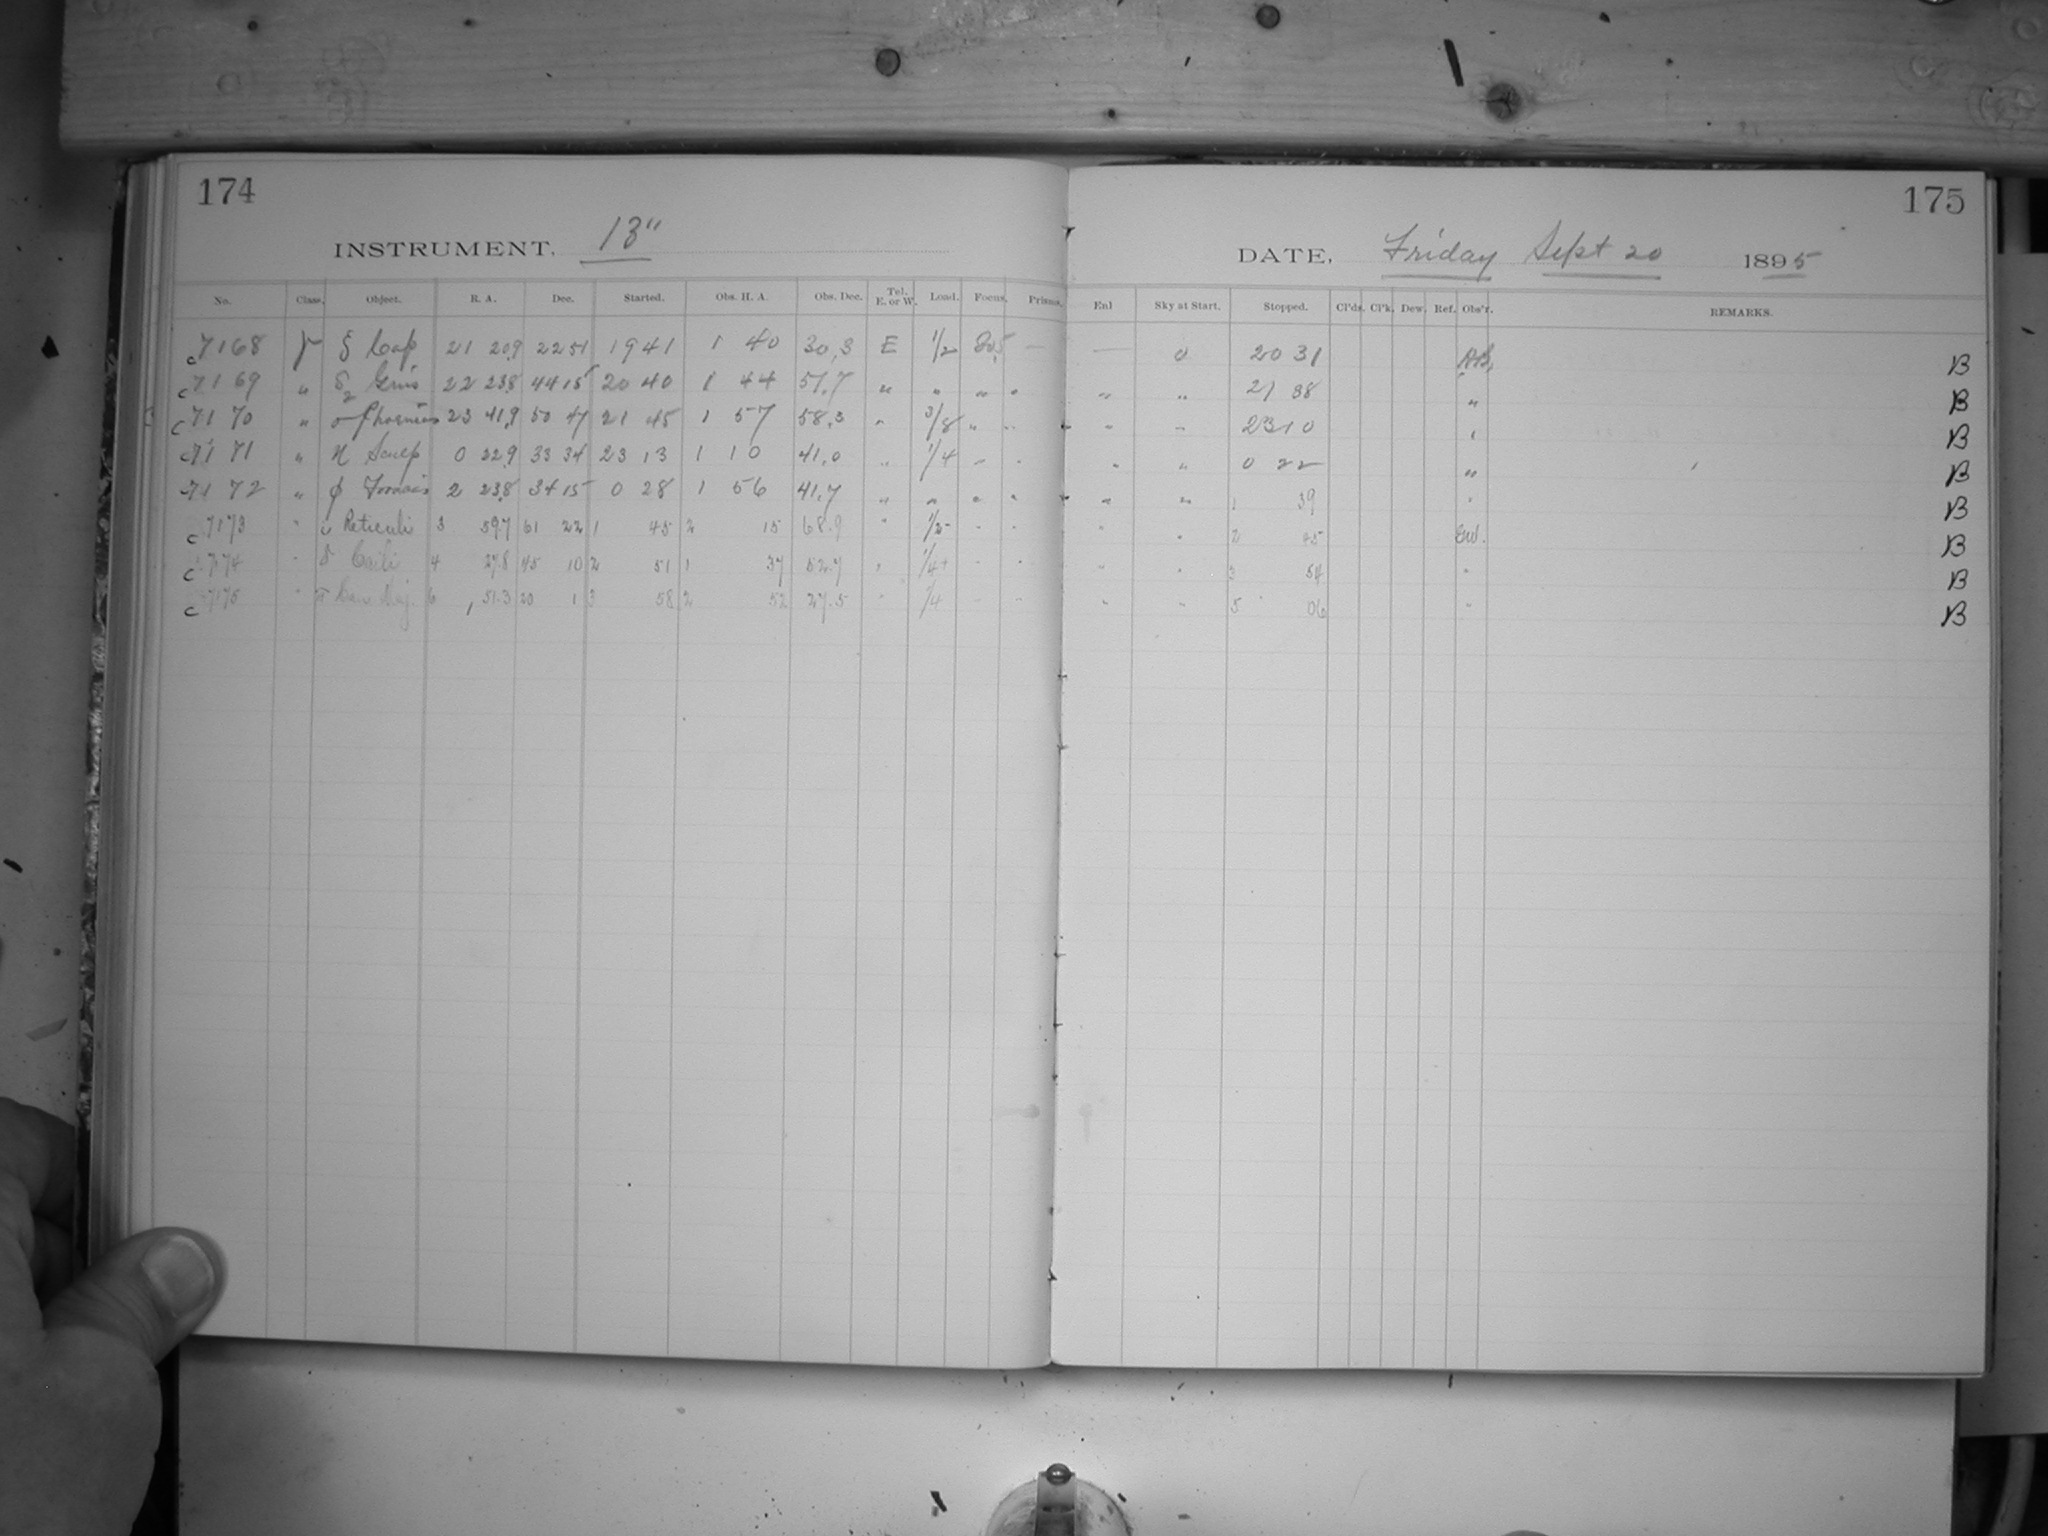 174
INSTRUMENT, 13"
No. Class. Object. R. A. Dec. Started. Obs. H. A. Obs. Dec. Tel. E. or W. Load. Focus. Prisms.
c7168 γ ξ Cap 21 20.9 22 51 19 41 1 40 30.3 E 1/2 20.5 —
c7169 " δ2 Gruis 22 23.8 44 15 20 40 1 44 51.7 " " " "
c7170 " σ Phoenicis 23 41.9 50 47 21 45 1 57 58.3 " 3/8 " "
c7171 " η Sculp 0 22.9 33 34 23 13 1 10 41.0 " 1/4 " "
7172 " φ Fornacis 2 23.8 34 15 0 28 1 56 41.7 " " " "
c7173 " υ Reticuli 3 59.7 61 22 1 45 2 15 68.9 " 1/2- " "
c7174 " δ Caeli 4 27.8 45 10 2 51 1 37 52.7 " 1/4+ " "
c7175 " π Can Maj. 6 51.3 20 1 3 58 2 52 27.5 " 1/4 " "
175
DATE, Friday Sept 20 1895
Enl Sky at Start. Stopped. Cl'ds. Cl'k. Dew. Ref. Obs'r. REMARKS.
— 0 20 31 B
" " 21 38 " B
" " 23 10 " B
" " 0 22 " B
" " 1 39 " B
" " 2 45 B
" " 3 54 " B
" " 5 06 " B